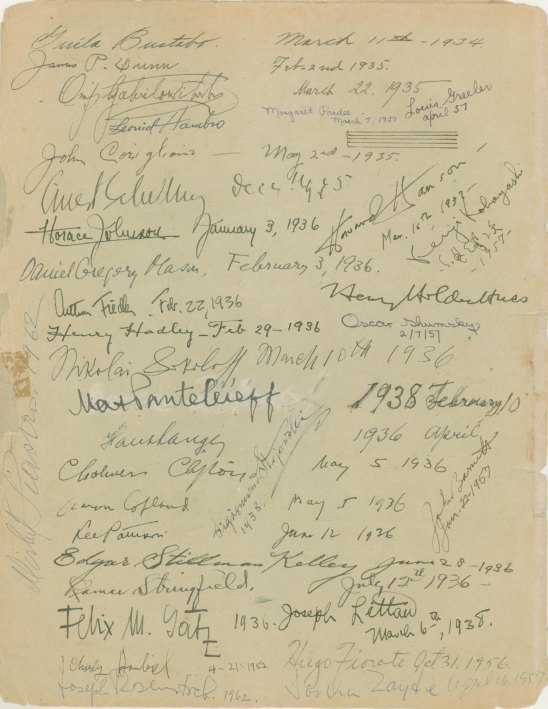 Guila Bustabo. March 11th - 1934.
James P. Dunn Feb. 2nd 1935.
Ossip Gabrilowitsch March 22, 1935
Margaret Pardee
March 7, 1957
Louis Graeler
April 57
Leonid Hambro
John Corigliano - May 2nd - 1935.
Ernest Schelling Dec 1935
Howard Hanson
Mar. 16th 1937
Kenji Kobayashi
1957-
Horace Johnson January 3, 1936
Daniel Gregory Mason. February 3, 1936.
Henry Holden Huss
Arthur Fiedler. Feb. 22, 1936
Oscar Shumsky
2/7/57
Henry Hadley - Feb 29 - 1936
Nikolai Sokoloff March 10th 1936
Max Panteleieff 1938 February 10
Hans Lange 1936 April
Sigismond Stojowski
1938.
Chalmers Clifton May 5 1936
John Barnett
Jan-22-1957
Aaron Copland May 5 1936
Lee Pattison June 12 1936
Mishel Piastro, 1962
Edgar Stillman Kelley June 28 - 1936
Lamar Stringfield. July 12th 1936 -
Felix M. Gatz 1936. Joseph Littau
March 6th, 1938.
4-21-1952 Hugo Fiorato Oct 31. 1956.
Joseph Rosenstock. 1962. April 16, 1957